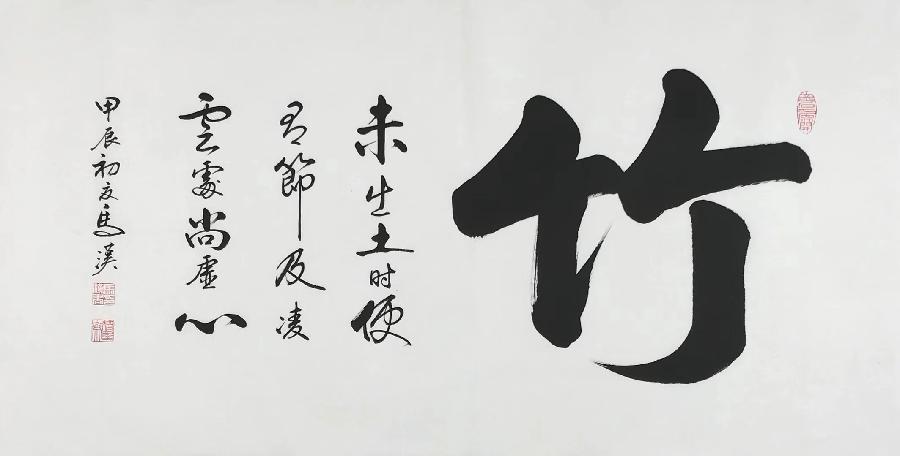 竹
未生土时便
有節及凌
雲處尚虛心
甲辰初夏馬漢